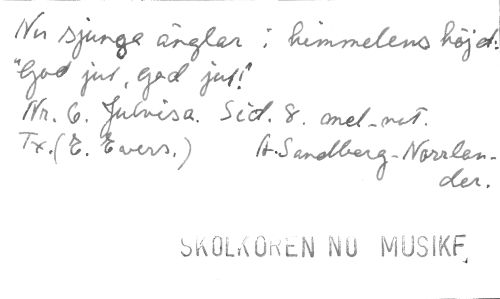 Nu sjunga änglar i himmelens höjd:
"God jul, God jul!"
Nr. 6. Julvisa. Sid. 8. mel-not.
Tx. (E. Evers.) A. Sandberg-Norrlan-
der.
SKOLKÖREN NU MUSIKF.